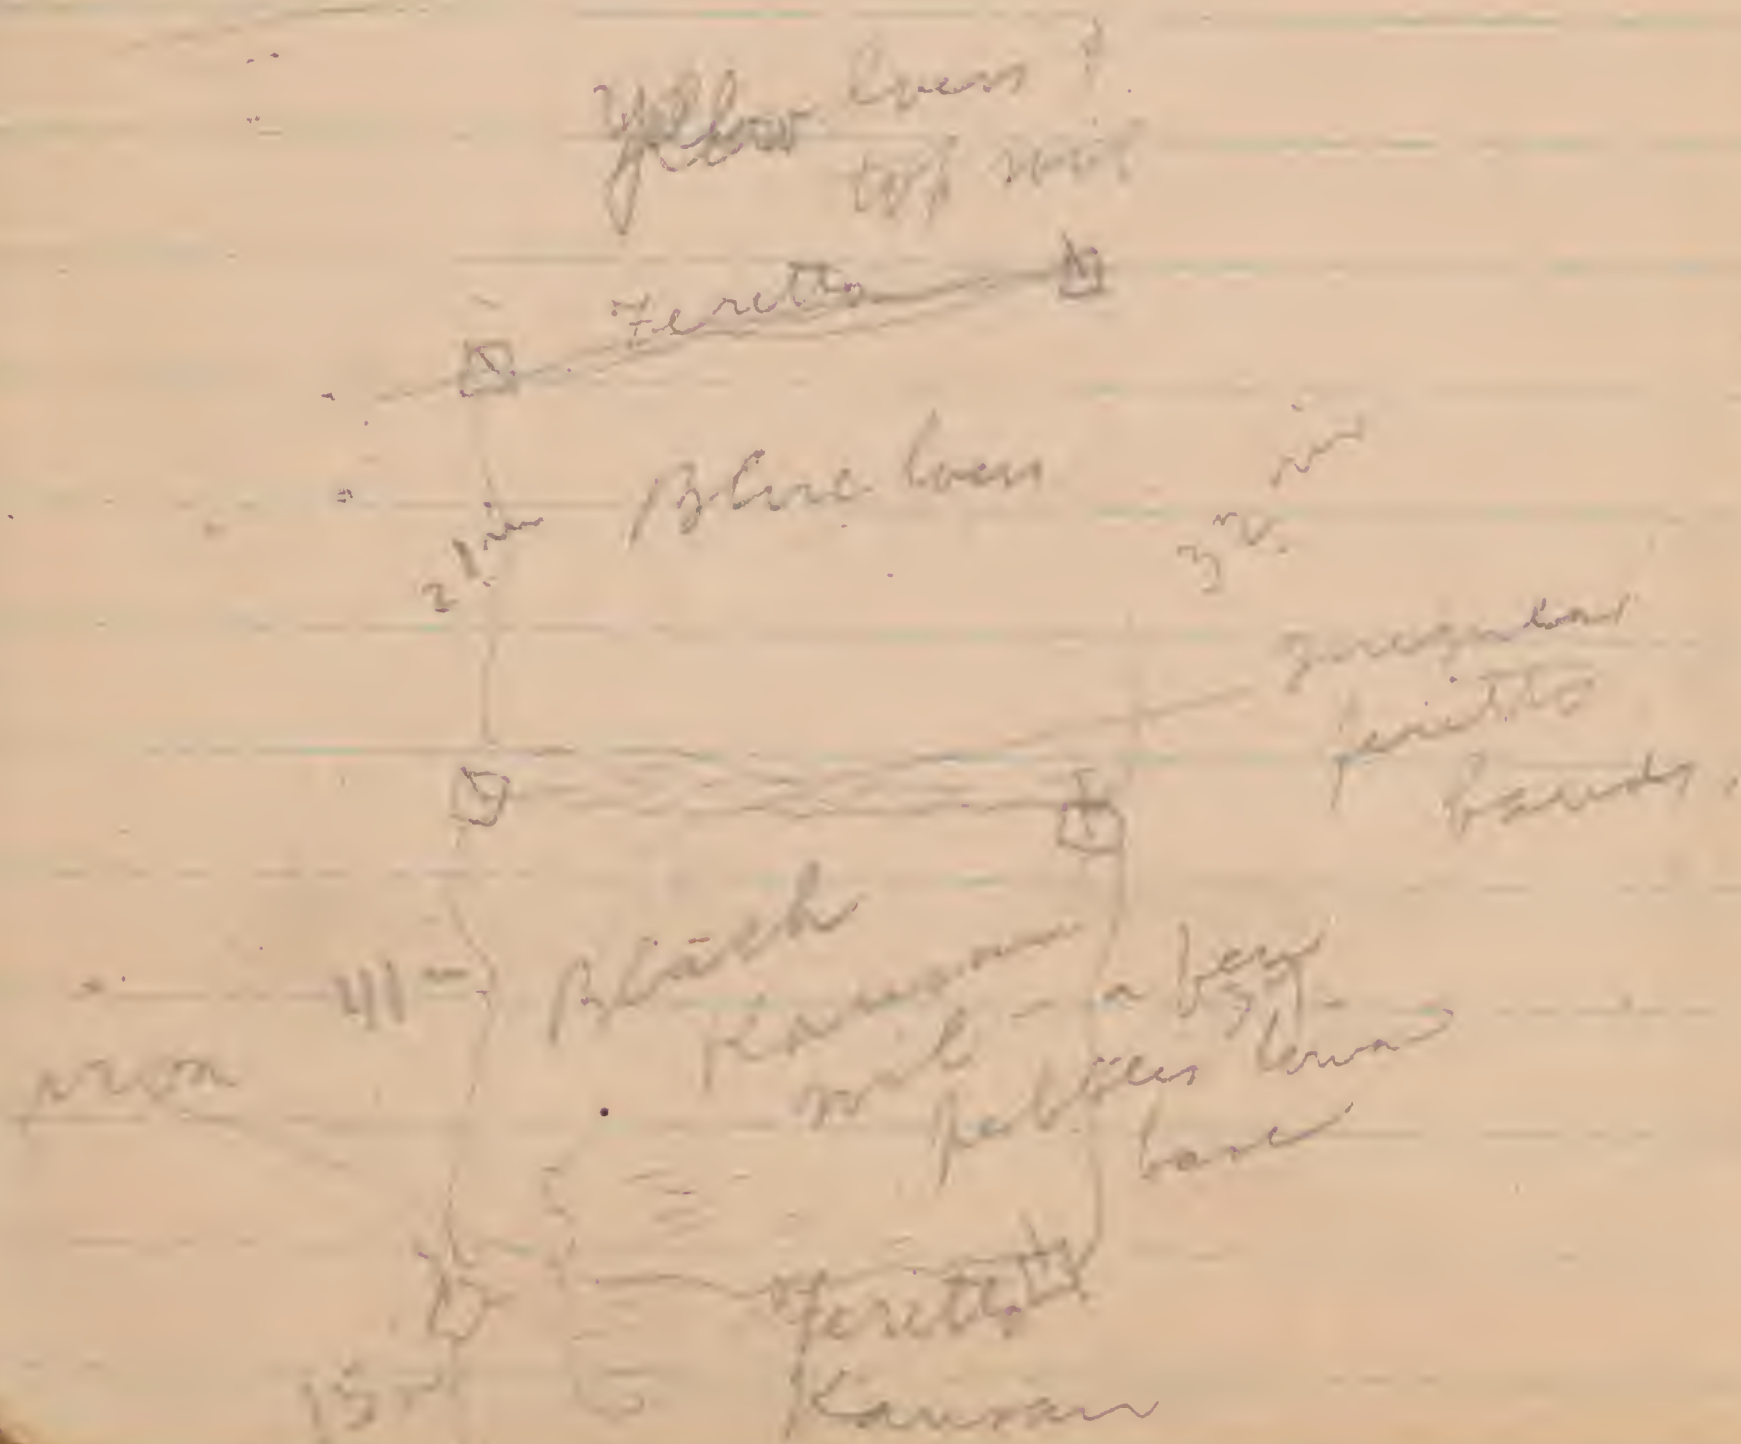 Yellow loess?
top soil
Feretto
Blue loess
21 in
32. in
Irregular
feretto
bands.
Black
Kansan
soil - a few
pebbles lower
base
41 -
Feretto
15
Kansan